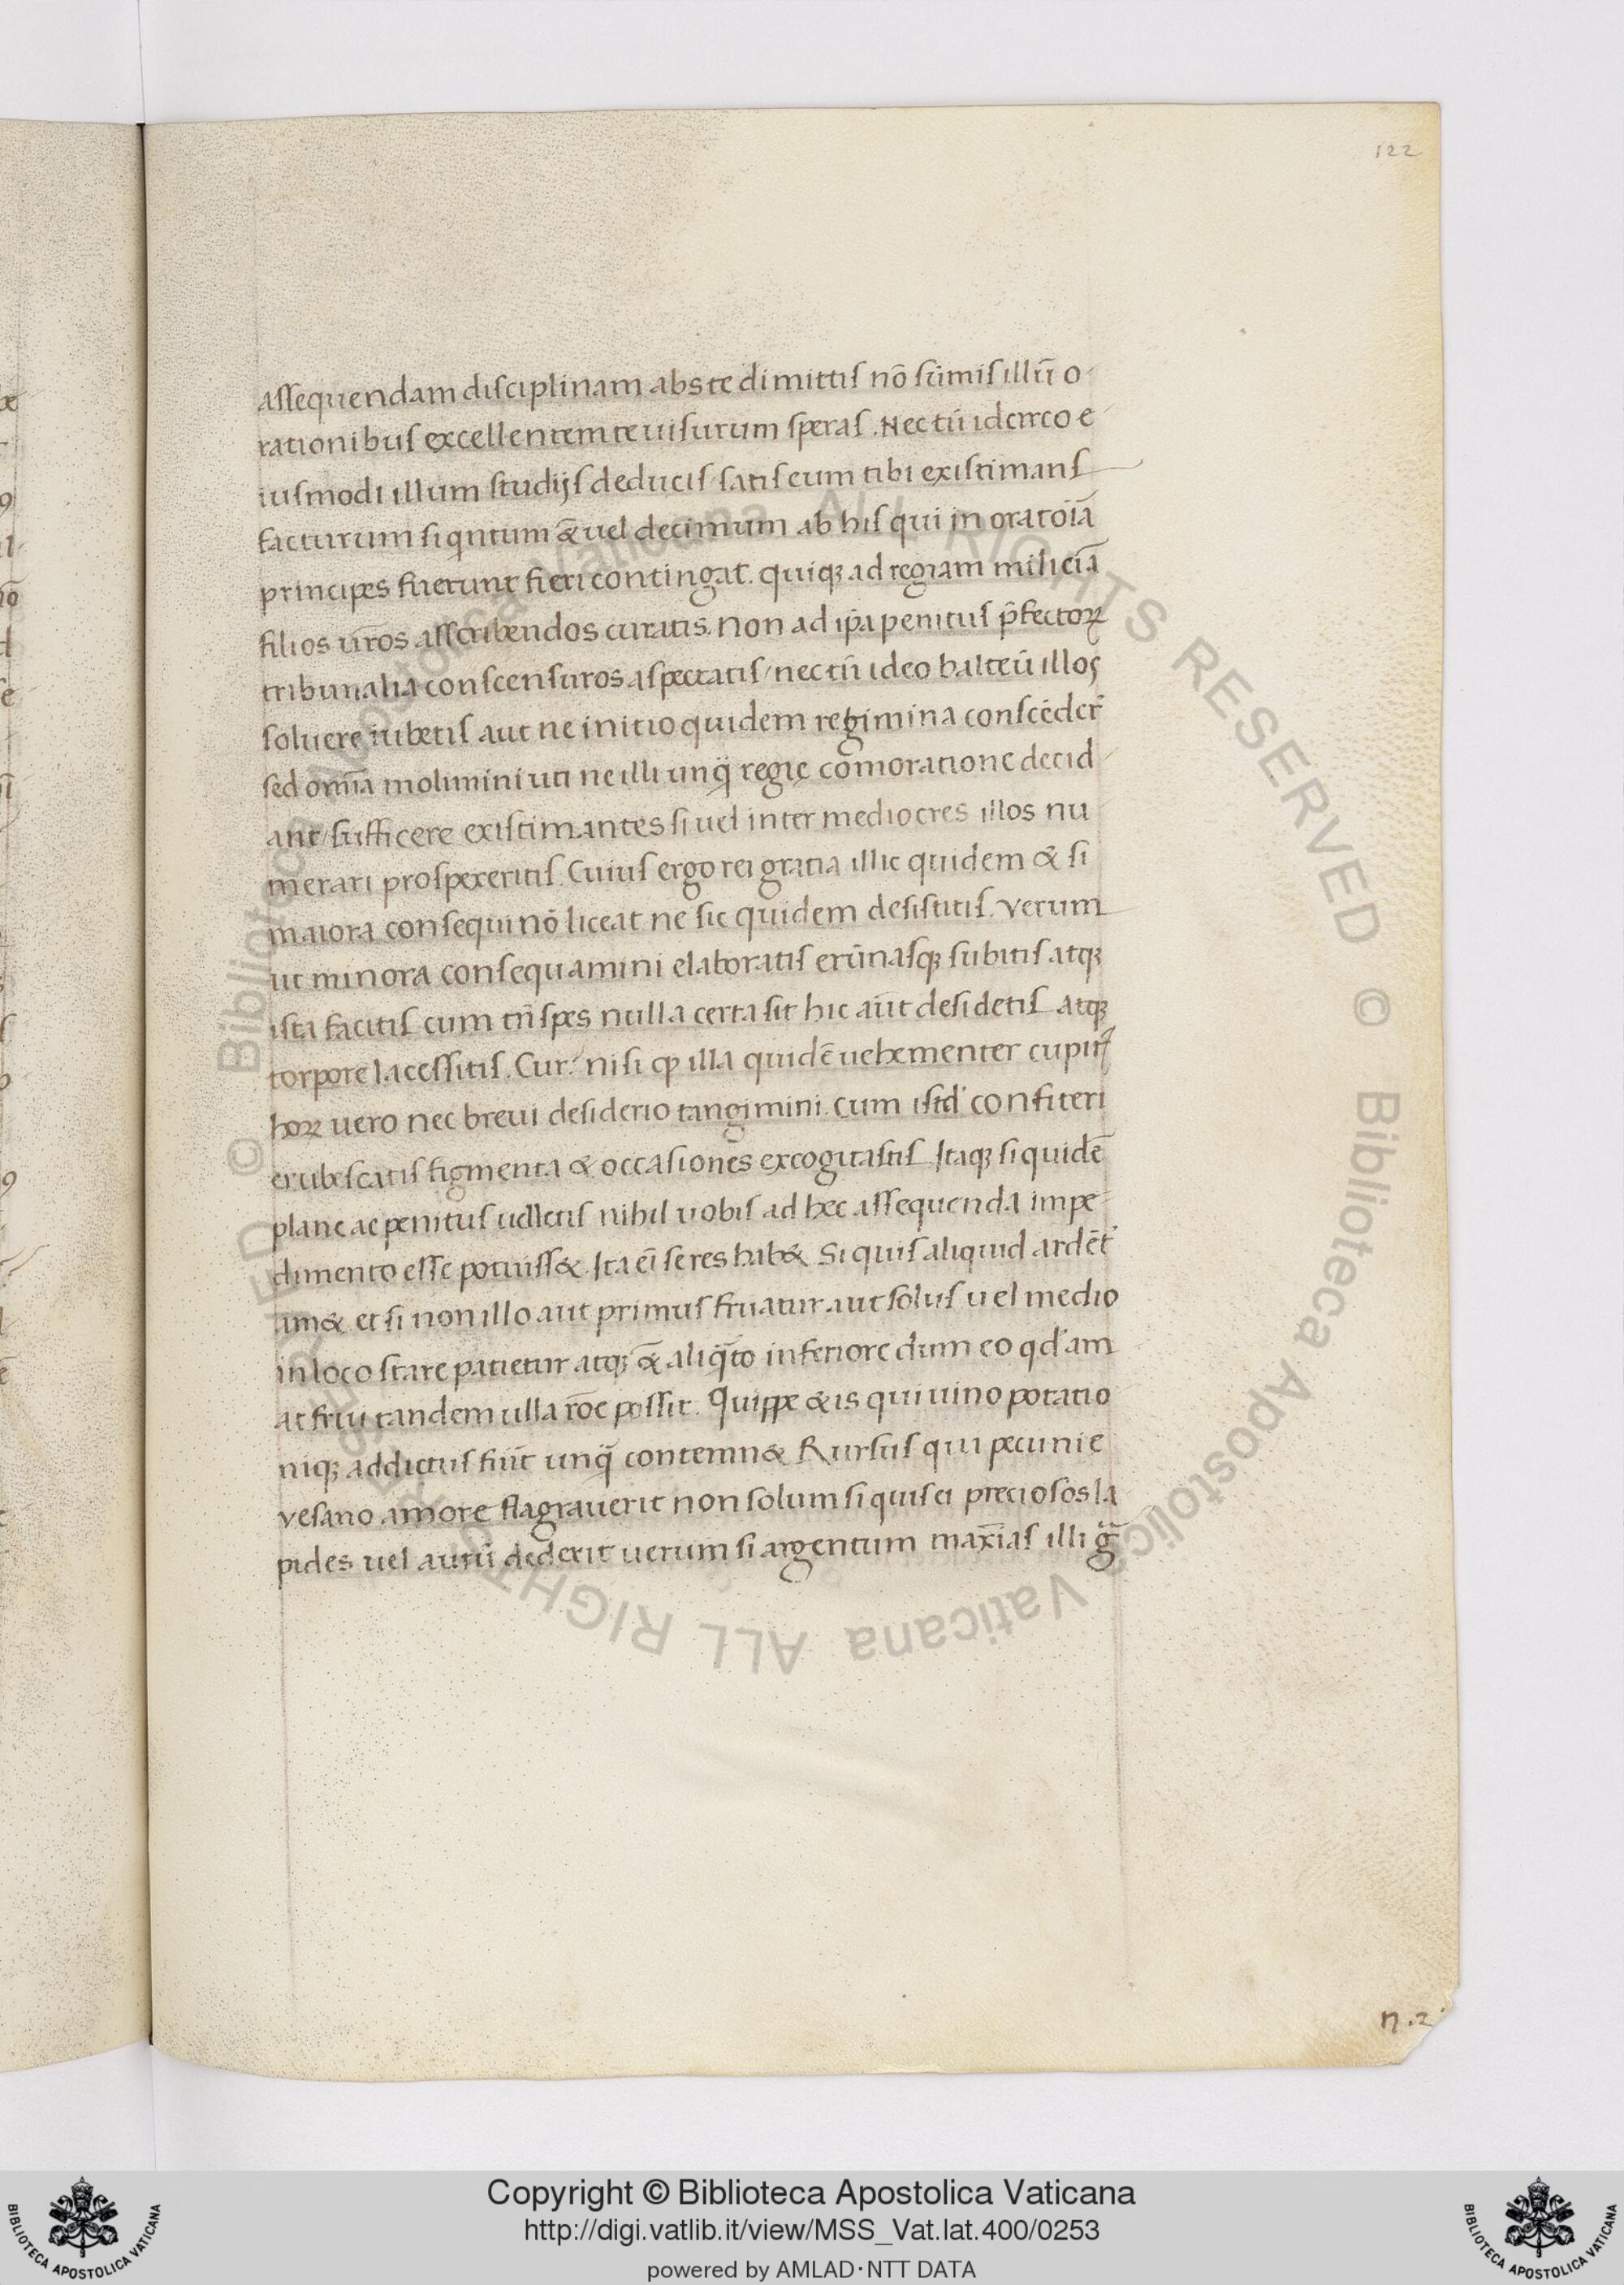 122
assequendam disciplinam abs te dimittis nō sūmis illū o-
rationibus excellentem te uisurum speras. Nec tū idcirco e-
iusmodi illum studijs deducis/ satis eum tibi existimans
facturum si qntum & uel decimum ab his qui in oratoīā
principes fuerunt fieri contingat. quiqꝫ ad regiam miliciā
filios uros asscribendos curatis. non ad ipā penitus p̄fectoꝝ
tribunalia conscensuros aspectatis/ nec tn̄ ideo balteū illos
soluere iubetis aut ne initio quidem regimina conscēder̄
sed omīa molimini uti ne illi unq̄ regię cōmoratione decid-
ant/ sufficere existimantes si uel inter mediocres illos nu
merari prospexeritis. Cuius ergo rei gratia illic quidem & si
maiora consequi nō liceat ne sic quidem desistitis. verum
ut minora consequamini elaboratis erūnasqꝫ subitis atqꝫ
ista facitis cum tn̄ spes nulla certa sit hic aūt desidetis atqꝫ
torpore lacessitis. Cur? nisi qꝫ illa quidē uehementer cupit
hoꝝ uero nec breui desiderio tangimini. cum istd' confiteri
erubescatis figmenta & occasiones excogitastis Itaqꝫ si quidē
plane ac penitus uelletis nihil uobis ad hec assequenda impe-
dimento esse potuiss&. Ita eī se res hab& Si quis aliquid ardēt'
am& et si non illo aut primus fruatur aut solus uel medio
in loco stare patietur atqꝫ & aliq̄to inferiore dum eo qd' am
at frui tandem ulla rōe possit. Quippe & is qui uino potatio
niqꝫ addictus fūit unq̄ contemn& Rursus qui pecunie
vesano amore flagrauerit non solum si quis ei preciosos la
pides uel aurū dederit uerum si argentum maxīas illi g̃
n.2
Copyright © Biblioteca Apostolica Vaticana
http://digi.vatlib.it/view/MSS_Vat.lat.400/0253
powered by AMLAD·NTT DATA
BIBLIOTECA APOSTOLICA VATICANA
BIBLIOTECA APOSTOLICA VATICANA
© Biblioteca Apostolica Vaticana ALL RIGHTS RESERVED © Biblioteca Apostolica Vaticana ALL RIGHTS RESERVED